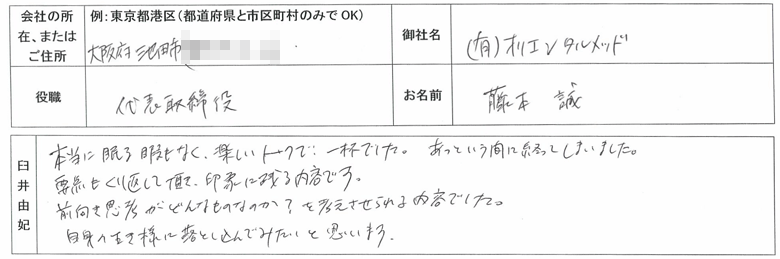 会社の所在、またはご住所
例：東京都港区（都道府県と市区町村のみでOK）
大阪府池田市
御社名
(有)オリエンタルメッド
役職
代表取締役
お名前
藤本 誠
臼井由妃
本当に眠る暇もなく、楽しいトークで一杯でした。 あっという間に経ってしまいました。
要点もくり返して頂き、印象に残る内容です。
前向き思考がどんなものなのか？を考えさせられる内容でした。
自身の生き様に落とし込んでみたいと思います。